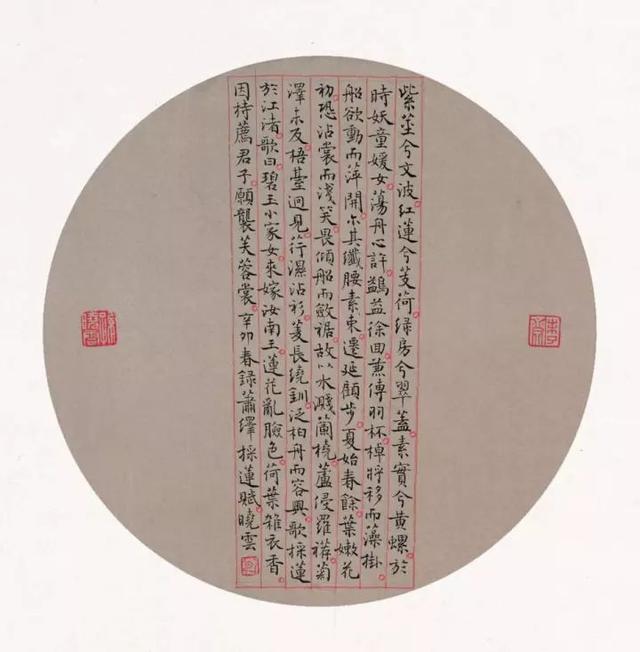 紫莖兮文波紅蓮兮芰荷綠房兮翠蓋素實兮黃螺於
時妖童媛女蕩舟心許鷁益徐回兼傳羽杯棹將移而藻掛
船欲動而萍開尔其纖腰素束遷延顧步夏始春餘葉嫩花
初恐沾裳而淺笑畏傾船而斂裾故以水濺蘭橈蘆侵羅䙱菊
澤未反梧臺迥見荇濕沾衫菱長繞釧泛柏舟而容與歌採蓮
於江渚歌曰碧玉小家女來嫁汝南王蓮花亂臉色荷葉雜衣香
因持薦君子願襲芙蓉裳辛卯春錄蕭繹採蓮賦曉雲